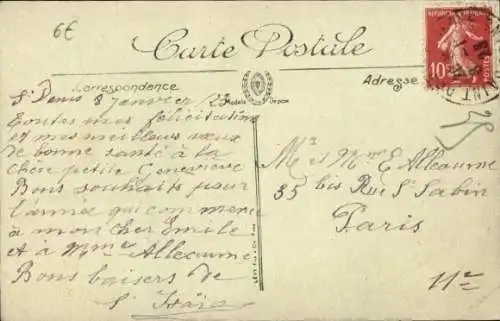 6€
Carte Postale
Correspondance
Adresse
Modèle Déposé
10c
POSTES
St Denis 8 Janvier 23
Toutes mes félicitations
et mes meilleurs vœux
de bonne santé à la
chère petite Geneviève
Bons souhaits pour
l'année qui commence
à mon cher Emile
et à Mme Alleaume
Bons baisers de
St
Mr et Mme E Alleaume
35 bis Rue St Sabin
Paris
11e